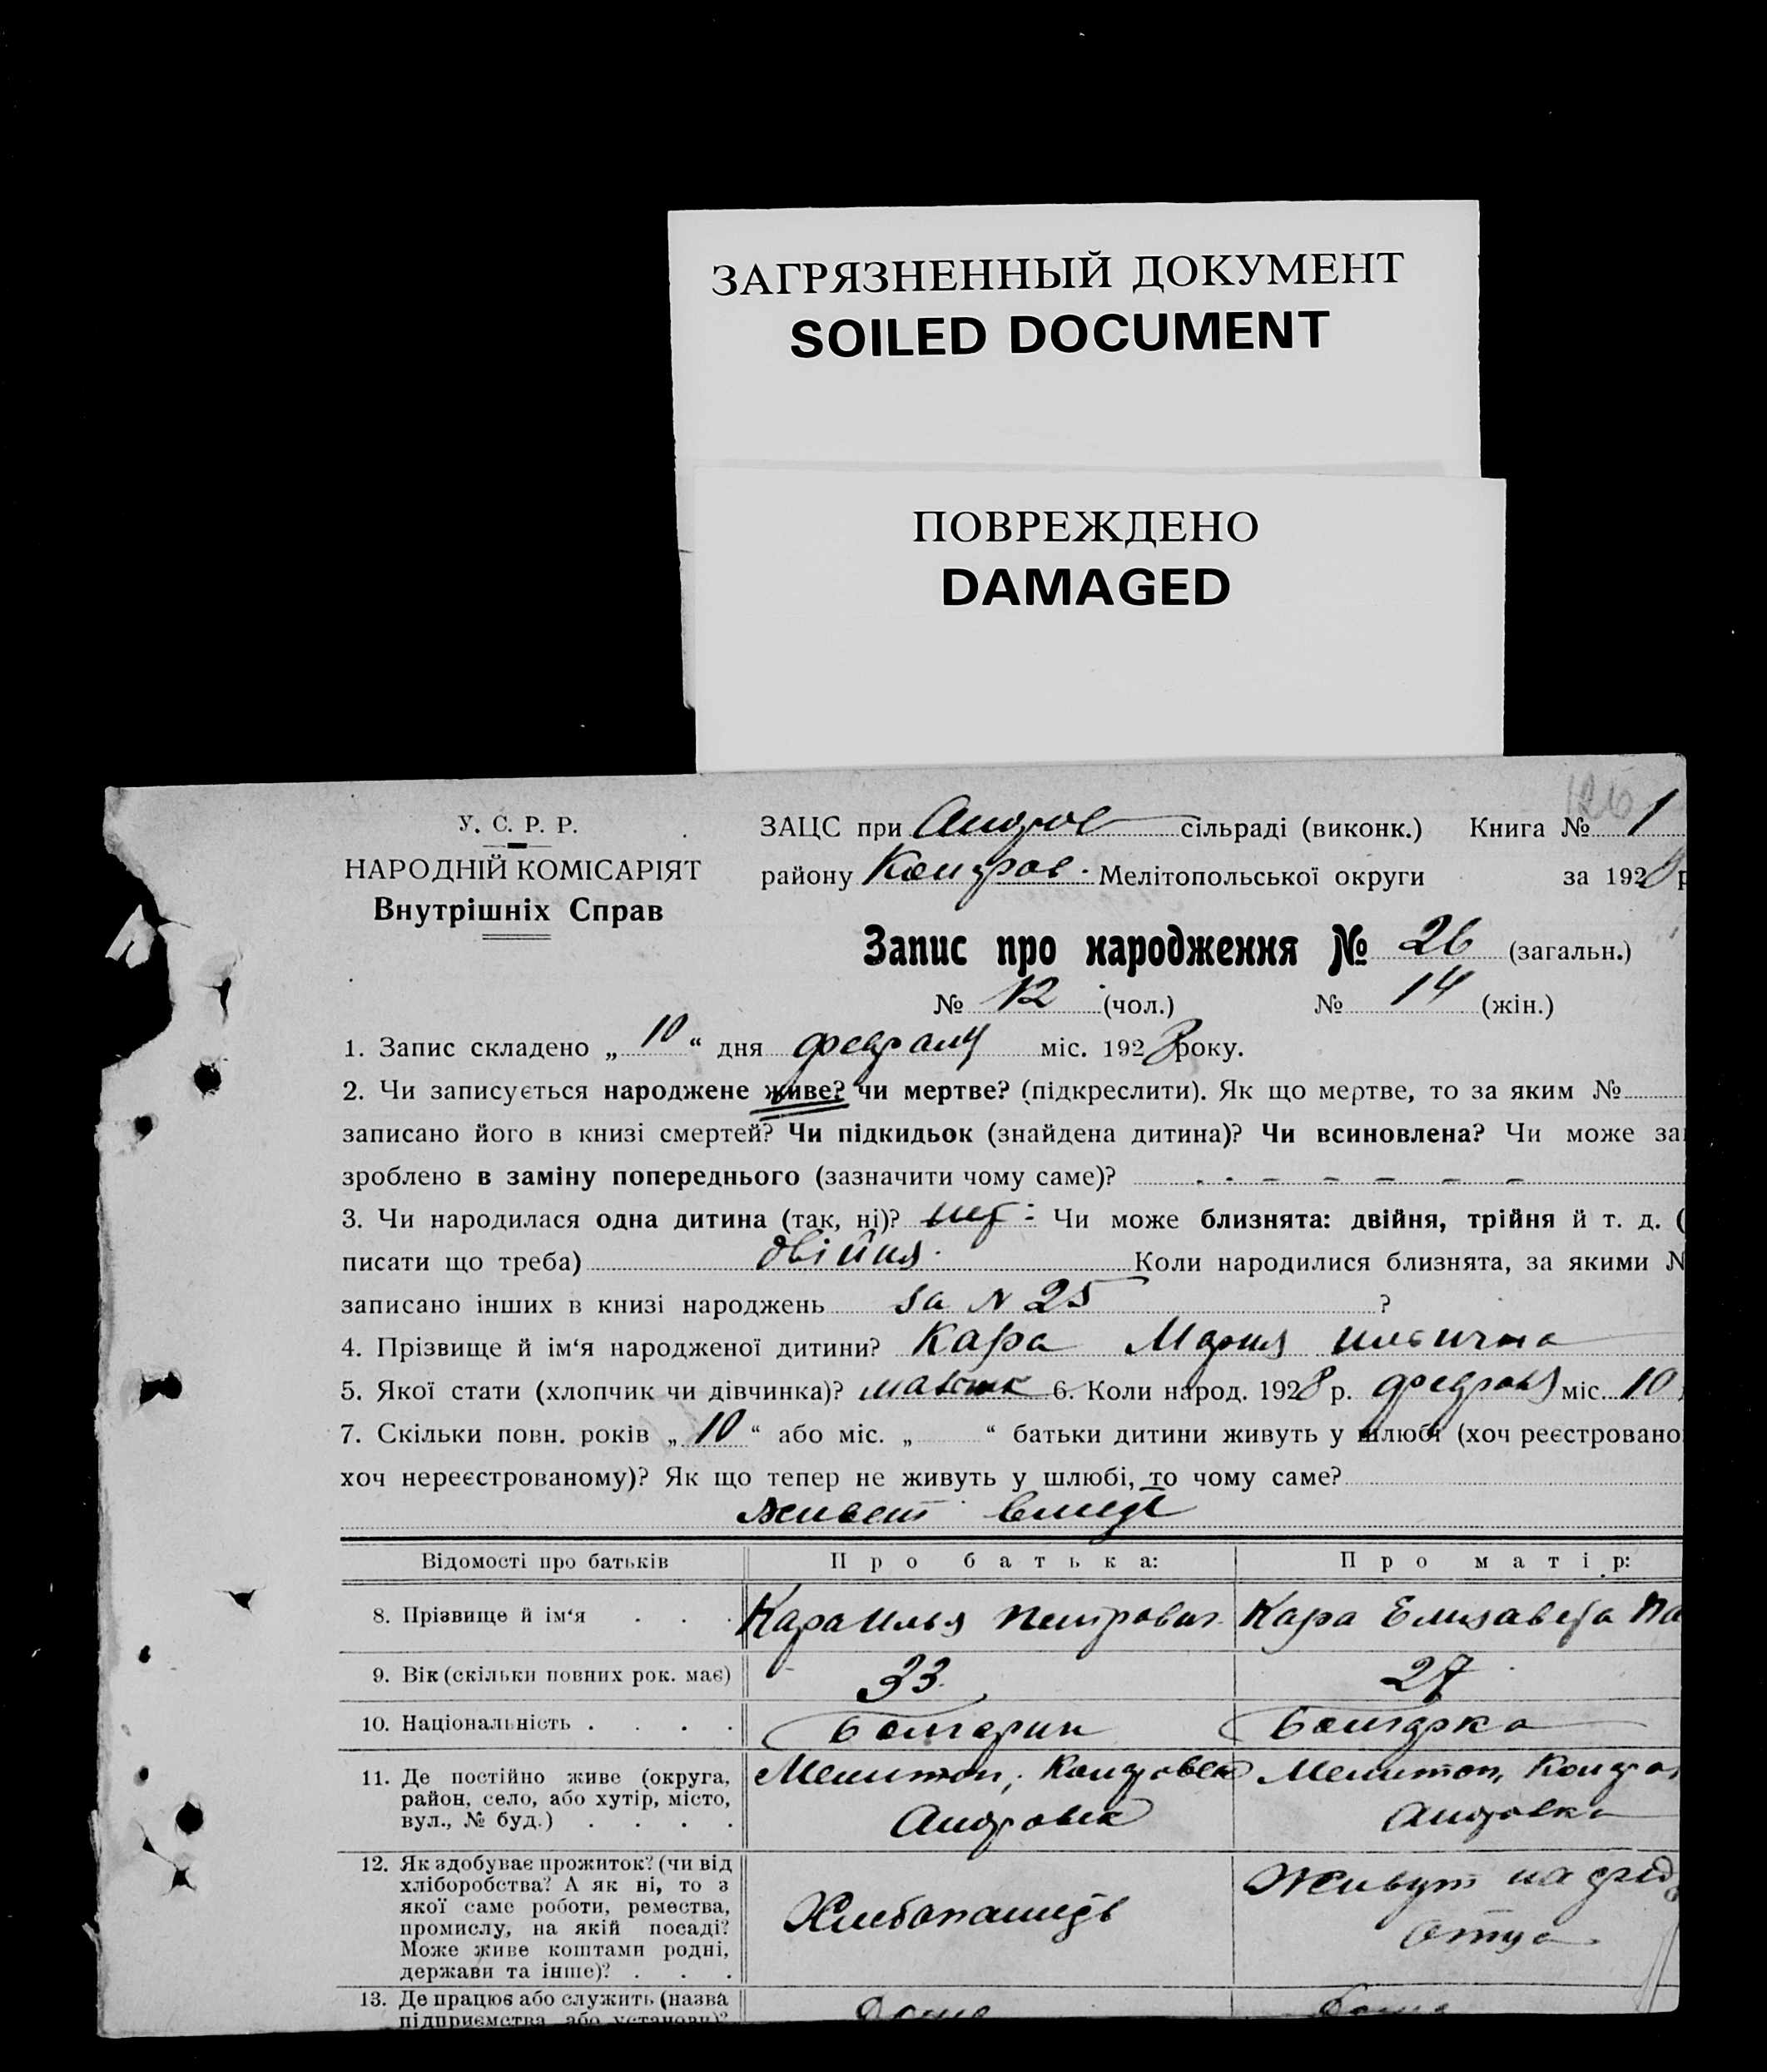 ЗАГРЯЗНЕННЫЙ ДОКУМЕНТ
SOILED DOCUMENT
ПОВРЕЖДЕНО
DAMAGED
126
У. С. Р. Р.
НАРОДНІЙ КОМІСАРІЯТ
Внутрішніх Справ
ЗАЦС при Андров сільраді (виконк.) Книга № 1
району Коларов. Мелітопольської округи за 1928 р
Запис про народження № 26 (загальн.)
№ 12 (чол.) № 14 (жін.)
1. Запис складено „ 10 “ дня февраля міс. 1928 року.
2. Чи записується народжене живе? чи мертве? (підкреслити). Як що мертве, то за яким №
записано його в книзі смертей? Чи підкидьок (знайдена дитина)? Чи всиновлена? Чи може за
зроблено в заміну попереднього (зазначити чому саме)? - - - - - - -
3. Чи народилася одна дитина (так, ні)? нет - Чи може близнята: двійня, трійня й т. д. (
писати що треба) двійня. Коли народилися близнята, за якими №
записано інших в книзі народжень за N 25 ?
4. Прізвище й ім‘я народженої дитини? Кара Мария Ильична
5. Якої стати (хлопчик чи дівчинка)? 6. Коли народ. 1928 р. февраля міс. 10
7. Скільки повн. років „ 10 “ або міс. „ “ батьки дитини живуть у шлюбі (хоч реєстровано
хоч нереєстрованому)? Як що тепер не живуть у шлюбі, то чому саме?
живет
Відомості про батьків Про батька: Про матір:
8. Прізвище й ім‘я . . . Кара Илья Петрович Кара Елизавета Па
9. Вік (скільки повних рок. має) 33. 27
10. Національність . . . . Болгарин Болгарка
11. Де постійно живе (округа, район, село, або хутір, місто, вул., № буд.) . . . . Мелитоп, Андровка Мелитоп, Андровка
12. Як здобуває прожиток? (чи від хліборобства? А як ні, то з якої саме роботи, ремества, промислу, на якій посаді? Може живе коштами родні, держави та інше)? . . . Хлебопашец Живут на сред отца
13. Де працює або служить (назва підприємства або установи)? Дома Дома